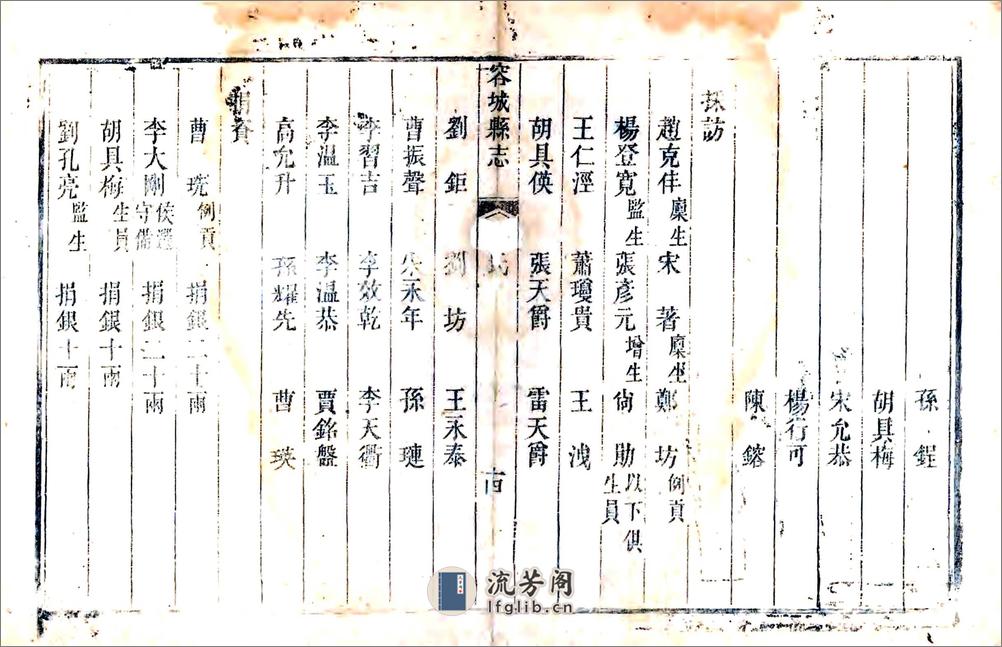 孫鋥
胡具梅
宋允恭
楊行可
陳鎔
採訪
趙克伟廩生 宋著廩生 鄭坊例貢
楊登寬監生 張彥元增生 尙勛以下俱生員
王仁涇 蕭瓊貴 王洩
胡具僙 張天爵 雷天爵
容城縣志 十四
劉鉅 劉坊 王永泰
曹振聲 永年 孫璉
李習吉 李效乾 李天衢
李溫玉 李溫恭 賈銘盤
高允升 孫耀先 曹瑛
捐資
曹珖例貢 捐銀二十兩
李大剛候選守備 捐銀二十兩
胡具梅生員 捐銀十兩
劉孔亮監生 捐銀十兩
流芳阁
lfglib.cn